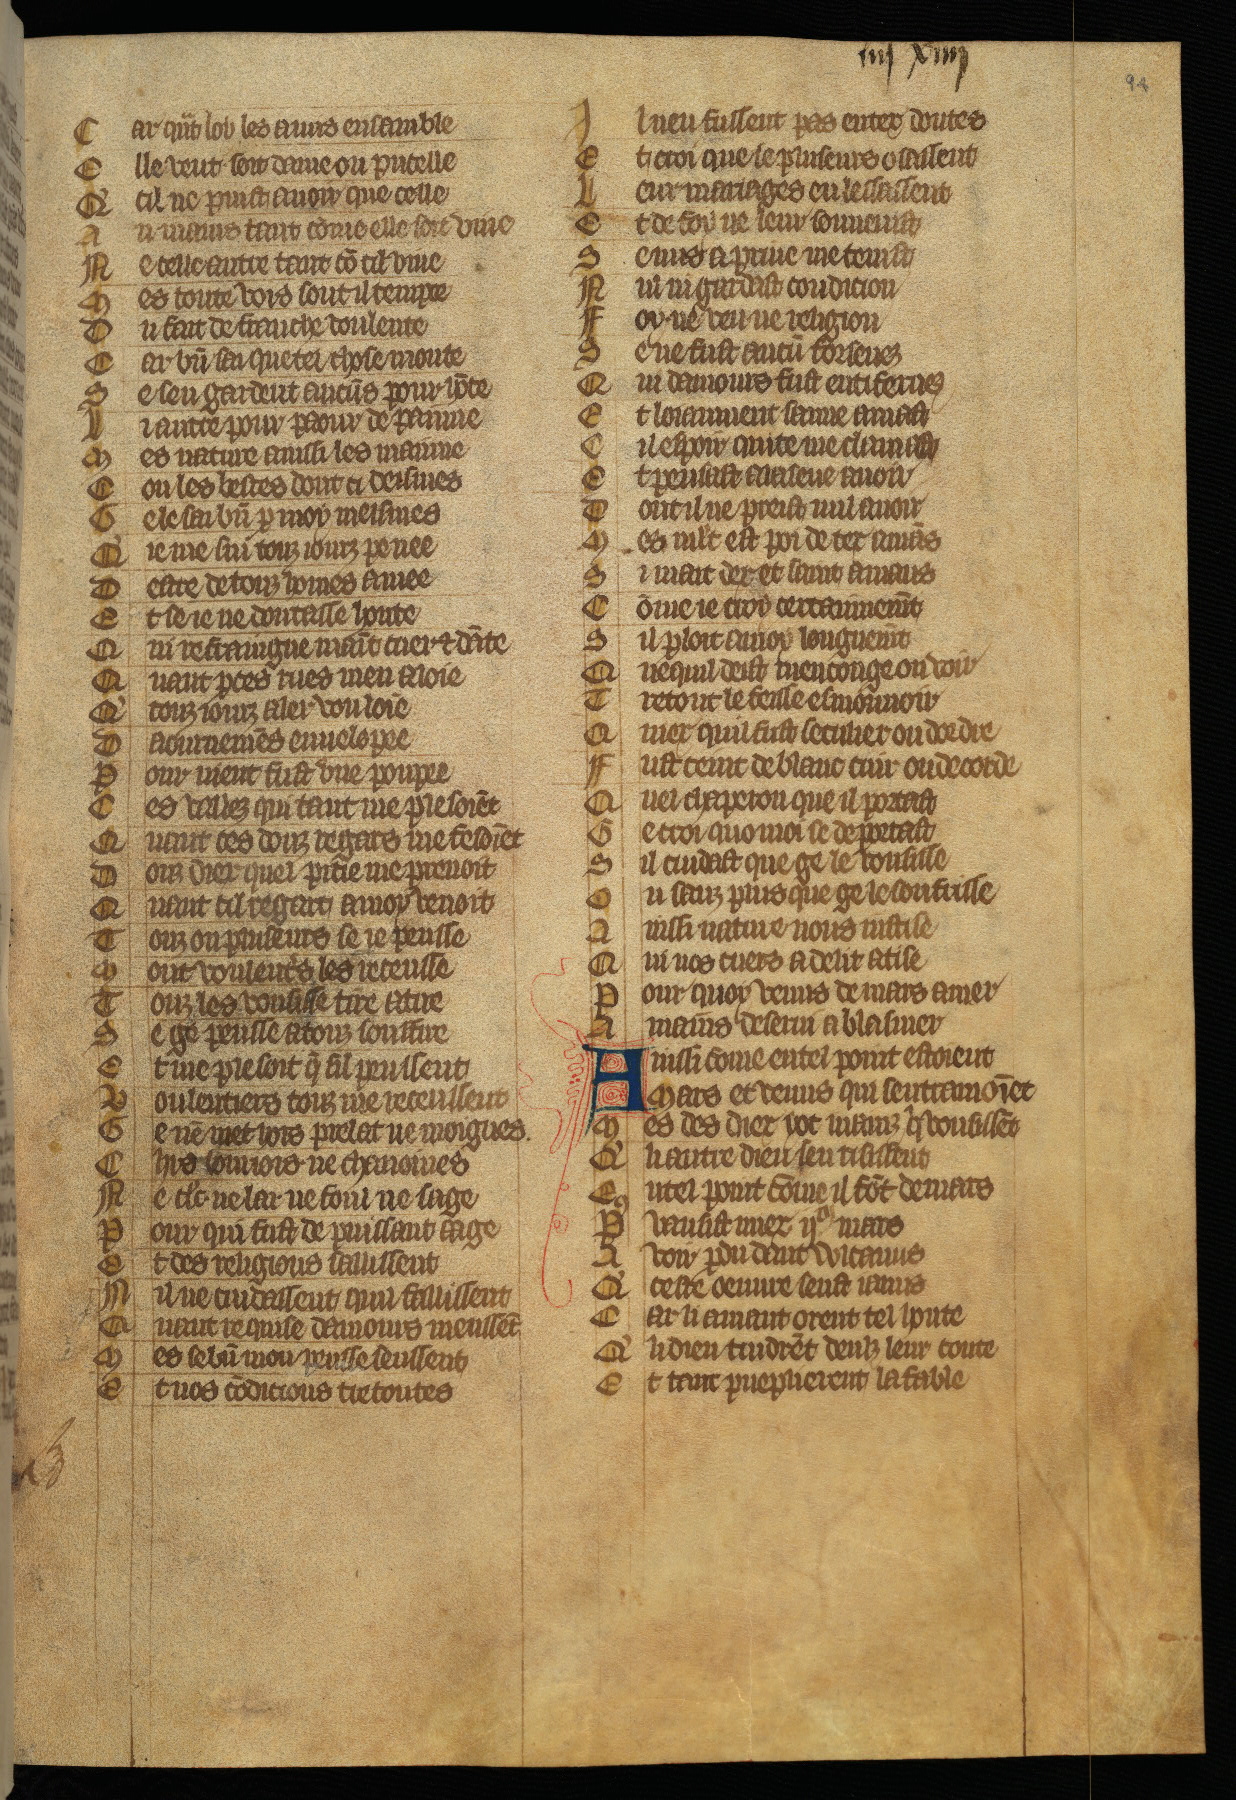 iiij xiiij
94
Car qñt lob les auirs ensamble
Elle veut soit dame ou pucelle
Q'til ne puist auoir que celle
Au mains tant cõme elle soit viue
Ne celle autre tant cõ cil viue
Mes toute vois sont il tempte
Du fait de franche voulente
Car bñ sai que tel chose monte
Se sen gardent aucũs pour hõte
Li autre pour paour de painne
Mes nature ainssi les mainne
Con les bestes dont ci deismes
Ge le sai bñ p moy meismes
Q' ie me sui touz iourz penee
Destre de touz homes amee
Et se ie ne doutasse honte
Qui refraingne maĩt cuer & dõte
Quant p ces rues men aloie
Q' touz iourz aler vouloie
Daournemẽs enuelopee
Pour nient fust vne poupee
Ces vallez qui tant me plesoiẽt
Quant ces douz regars me fesoiẽt
Douz diex quel pitie me prenoit
Quant cil regart a moy venoit
Touz ou pluseurs se ie peusse
Mout voulentẽs les receusse
Touz les vousisse tire a tire
Se ge peusse a touz souffire
Et me plesoit q̃ sil peussent
Voulentiers touz me receussent
Ge nẽ met hors prelat ne moignes
Chĩrs bouriois ne chanoines
Ne clĩc ne lai ne foul ne sage
Pour qui fust de puissant aage
Et des religions saillissent
Nil ne cuidassent quil faillissent
Quant requise damours meussẽt
Mes se bñ mon pensse seussent
Et nos cõdicions tretoutes
Il neu fussent pas entex doutes
Et croi que se pluseurs osassent
Leur mariages en lessassent
Et de foy ne leur souuenist
Se nus a priue me tenist
Nni ni gardast condicion
Foy ne veu ne religion
Se ne fust aucũ forsenez
Qui damours fust entifernez
Et loiaument samie amast
Cil espoir quite me clamast
Et pensast a la seue auoir
Dont il ne preist nul auoir
Mes mlt est poi de tex amãs
Si mait dex et saint amans
Cõme ie croy certainnemẽt
Sil plast a moy longuemẽt
Que quil deist mencõnge ou voir
Tretout le feisse esmouuoir
Quiex quil fust seculier ou dordre
Fust ceint de blanc cuir ou de corde
Quel chaperon que il portast
Ge croi quo moi se deportast
Sil cuidast que ge le vousisse
Ou sanz plus que ge le souffrisse
Ainssi nature nous iustise
Qui nos cuers a delit atise
Pour quoy venus de mars amer
A mains deserui a blasmer
Ainssi cõme en tel point estoient
Mars et venus qui sentramoiẽt
Mes des diex yot mainz q̃ vousissẽt
Q' li autre dieu sen risissent
En tel point cõme il fõt de mars
Vausist miex ij mars
Auoir pdu dant vlcanus
Q' ceste oeuure seust ianus
Car li amant orent tel honte
Q' li dieu tindrẽt deuls leur conte
Et tant pueplierent la fable